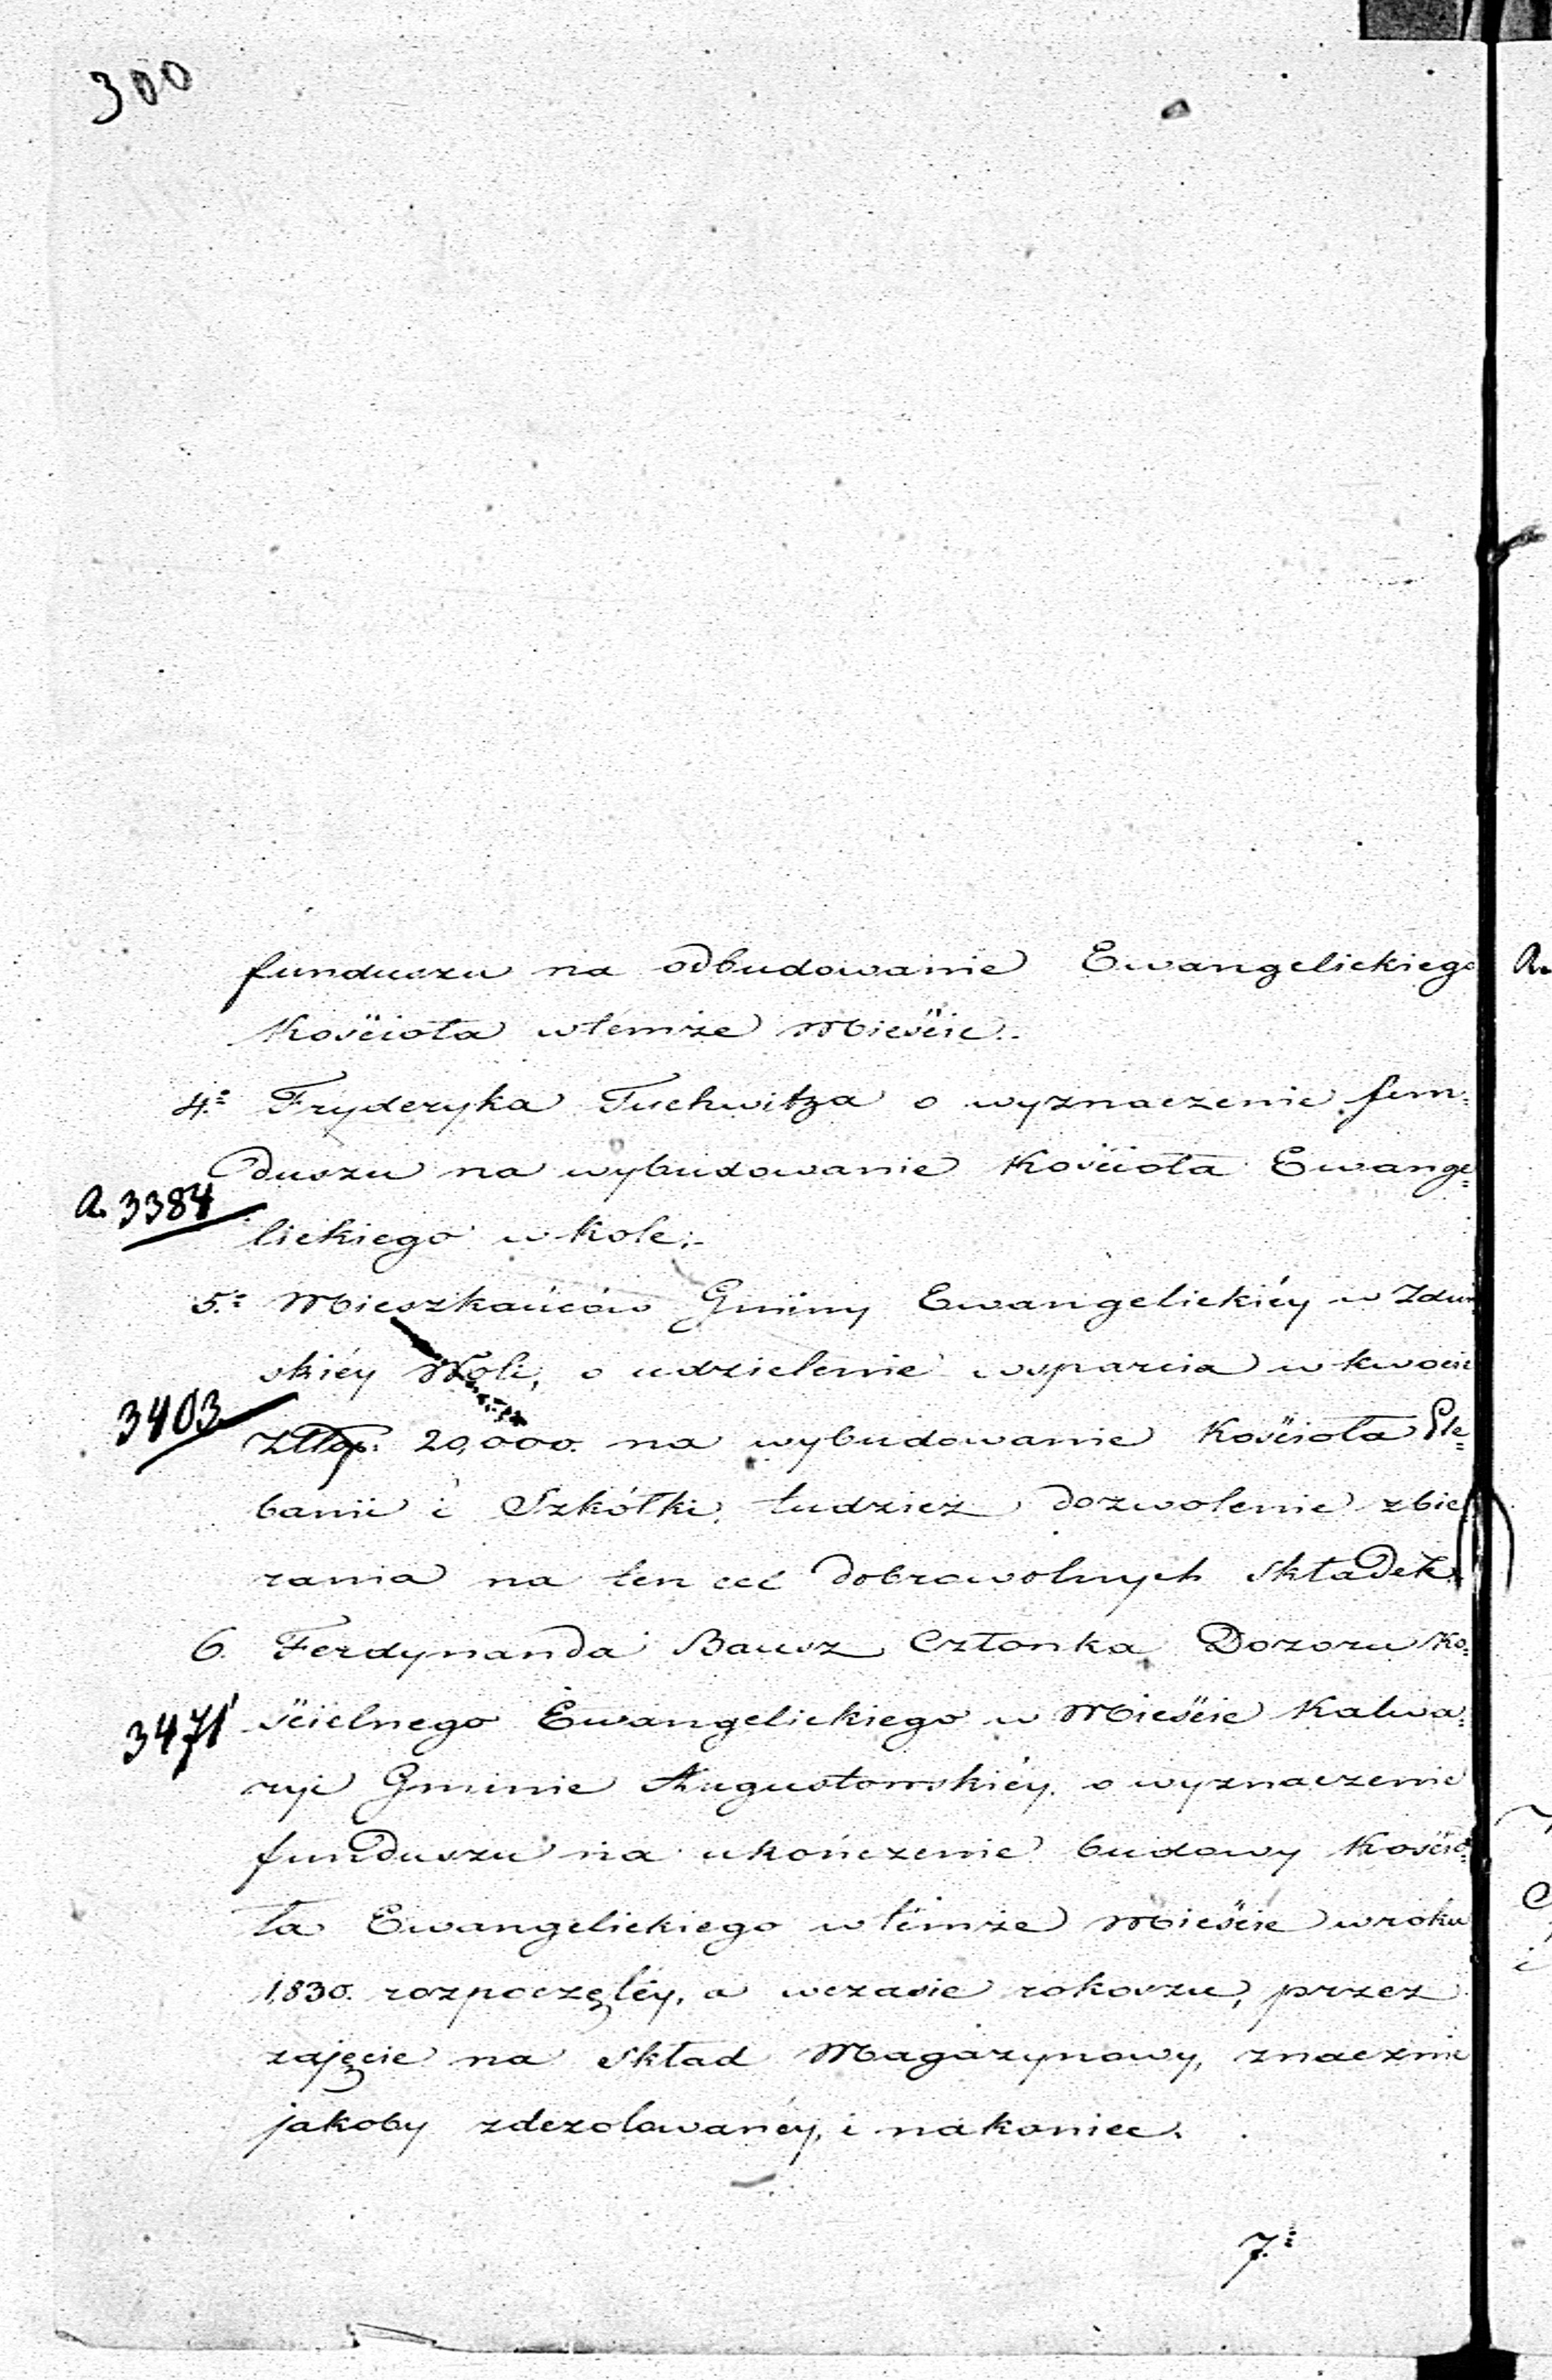 300
funduszu na odbudowanie Ewangelickiego
Kościoła w témże Mieście.
4.: Fryderyka Tuchwitza o wyznaczenie fun=
duszu na wybudowanie Kościoła Ewange=
a. 3384
lickiego w Kole.
5.: Mieszkańców Gminy Ewangelickiéy w Zduń
skiéy Woli, o udzielenie wsparcia w kwocie
3403
Złtop. 20,000. na wybudowanie Kościoła Ple=
banii i Szkółki, tudzież dozwolenie zbie
rania na ten cel dobrowolnych składek.
6. Ferdynanda Bausz Członka Dozoru Ko=
3471
ścielnego Ewangelickiego w Mieście Kalwa=
ryi Gminie Augustowskiéy, o wyznaczenie
funduszu na ukończenie budowy Kościo=
ła Ewangelickiego w témże Mieście w roku
1830. rozpoczętéy, a w czasie rokoszu, przez
zajęcie na skład Magazynowy, znacznie
jakoby zdezolowanéy, i nakoniec.
7.: